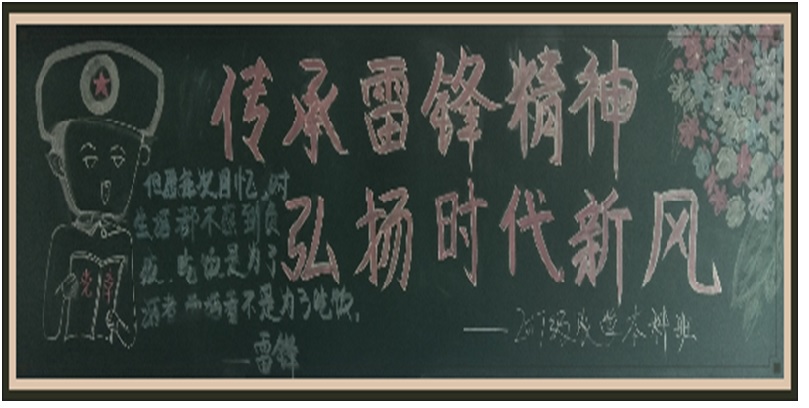 传承雷锋精神
弘扬时代新风
但愿每次回忆,对
生活都不感到负
疚.吃饭是为了
活着 而活着不是为了吃饭.
—雷锋
本科班